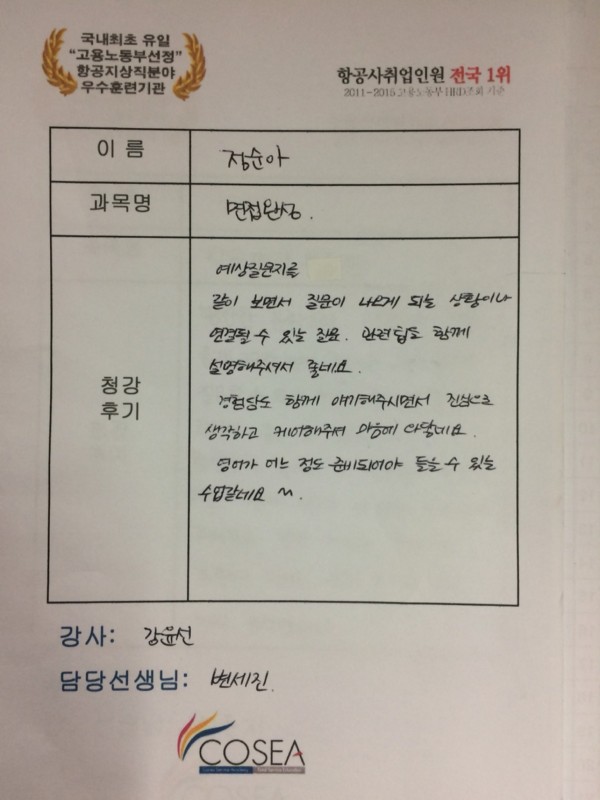 국내최초 유일
“고용노동부선정”
항공지상직분야
우수훈련기관
항공사취업인원 전국 1위
2011-2016 고용노동부 HRD조회 기준
이 름
정순아
과목명
면접완성.
청강
후기
예상질문지를
같이 보면서 질문이 나오게 되는 상황이나
연결될 수 있는 질문. 관련팁도 함께
설명해주셔서 좋네요.
경험담도 함께 얘기해주시면서 진심으로
생각하고 케어해주셔 마음에 와닿네요.
영어가 어느 정도 준비되어야 들을 수 있는
수업같네요 ~.
강사: 강윤선
담당선생님: 변세진.
COSEA